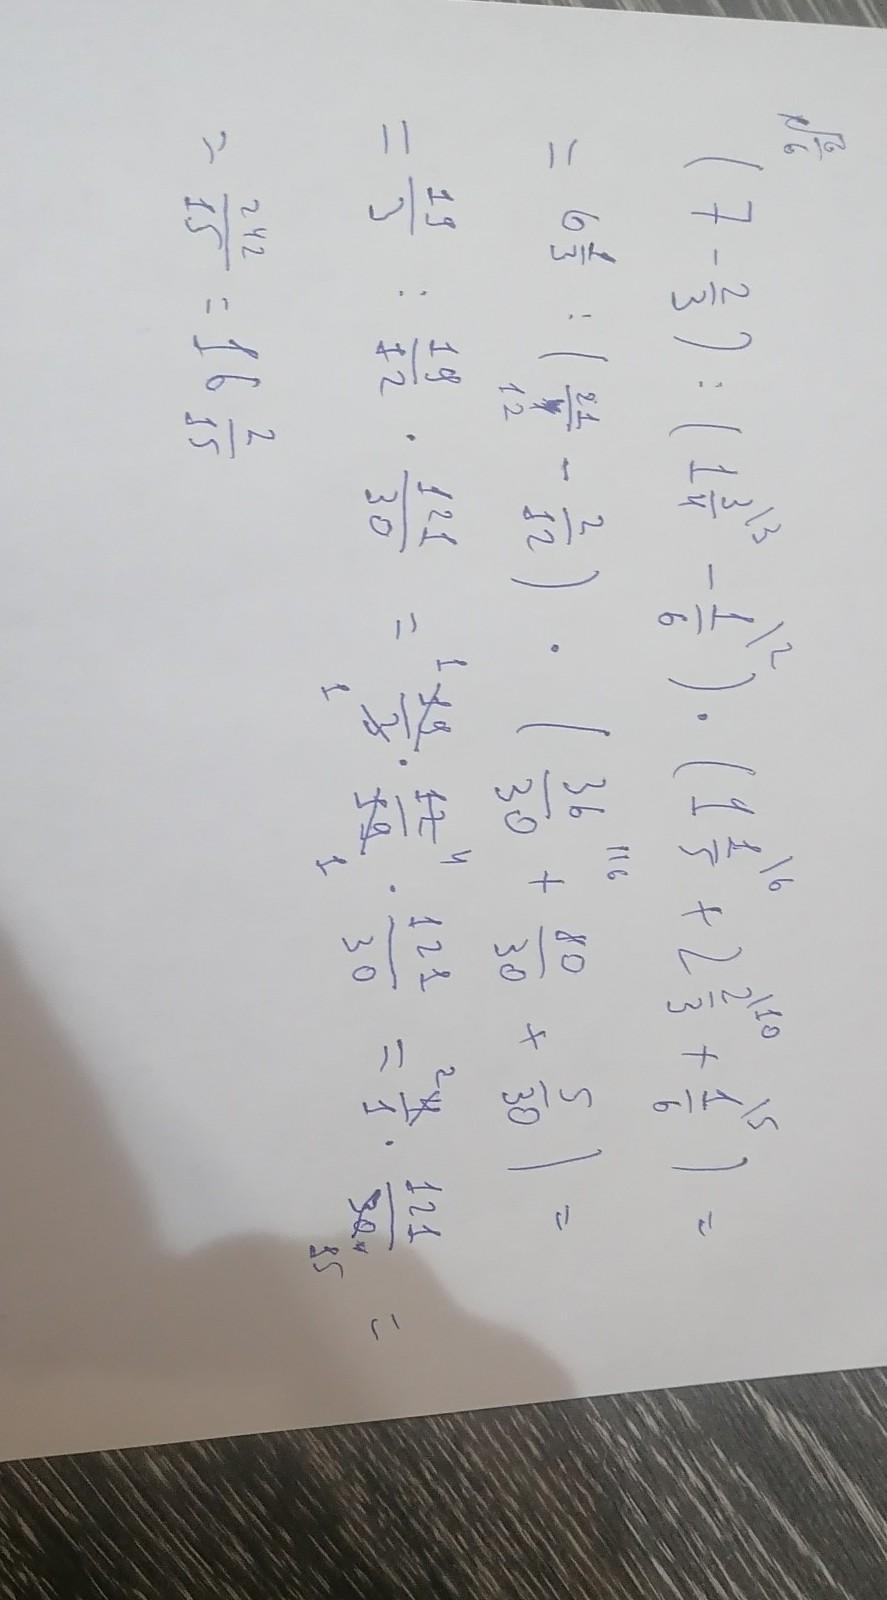 № 6/6
(7 - 2/3) : (1 3/4 \3 - 1/6 \2) · (1 1/5 \6 + 2 2/3 \10 + 1/6 \5) =
= 6 1/3 : (21/12 - 2/12) · (36/30 + 80/30 + 5/30) = 116
= 19/3 : 19/12 · 121/30 = 19/3 · 12/19 · 121/30 = 4/1 · 121/30 =
= 242/15 = 16 2/15